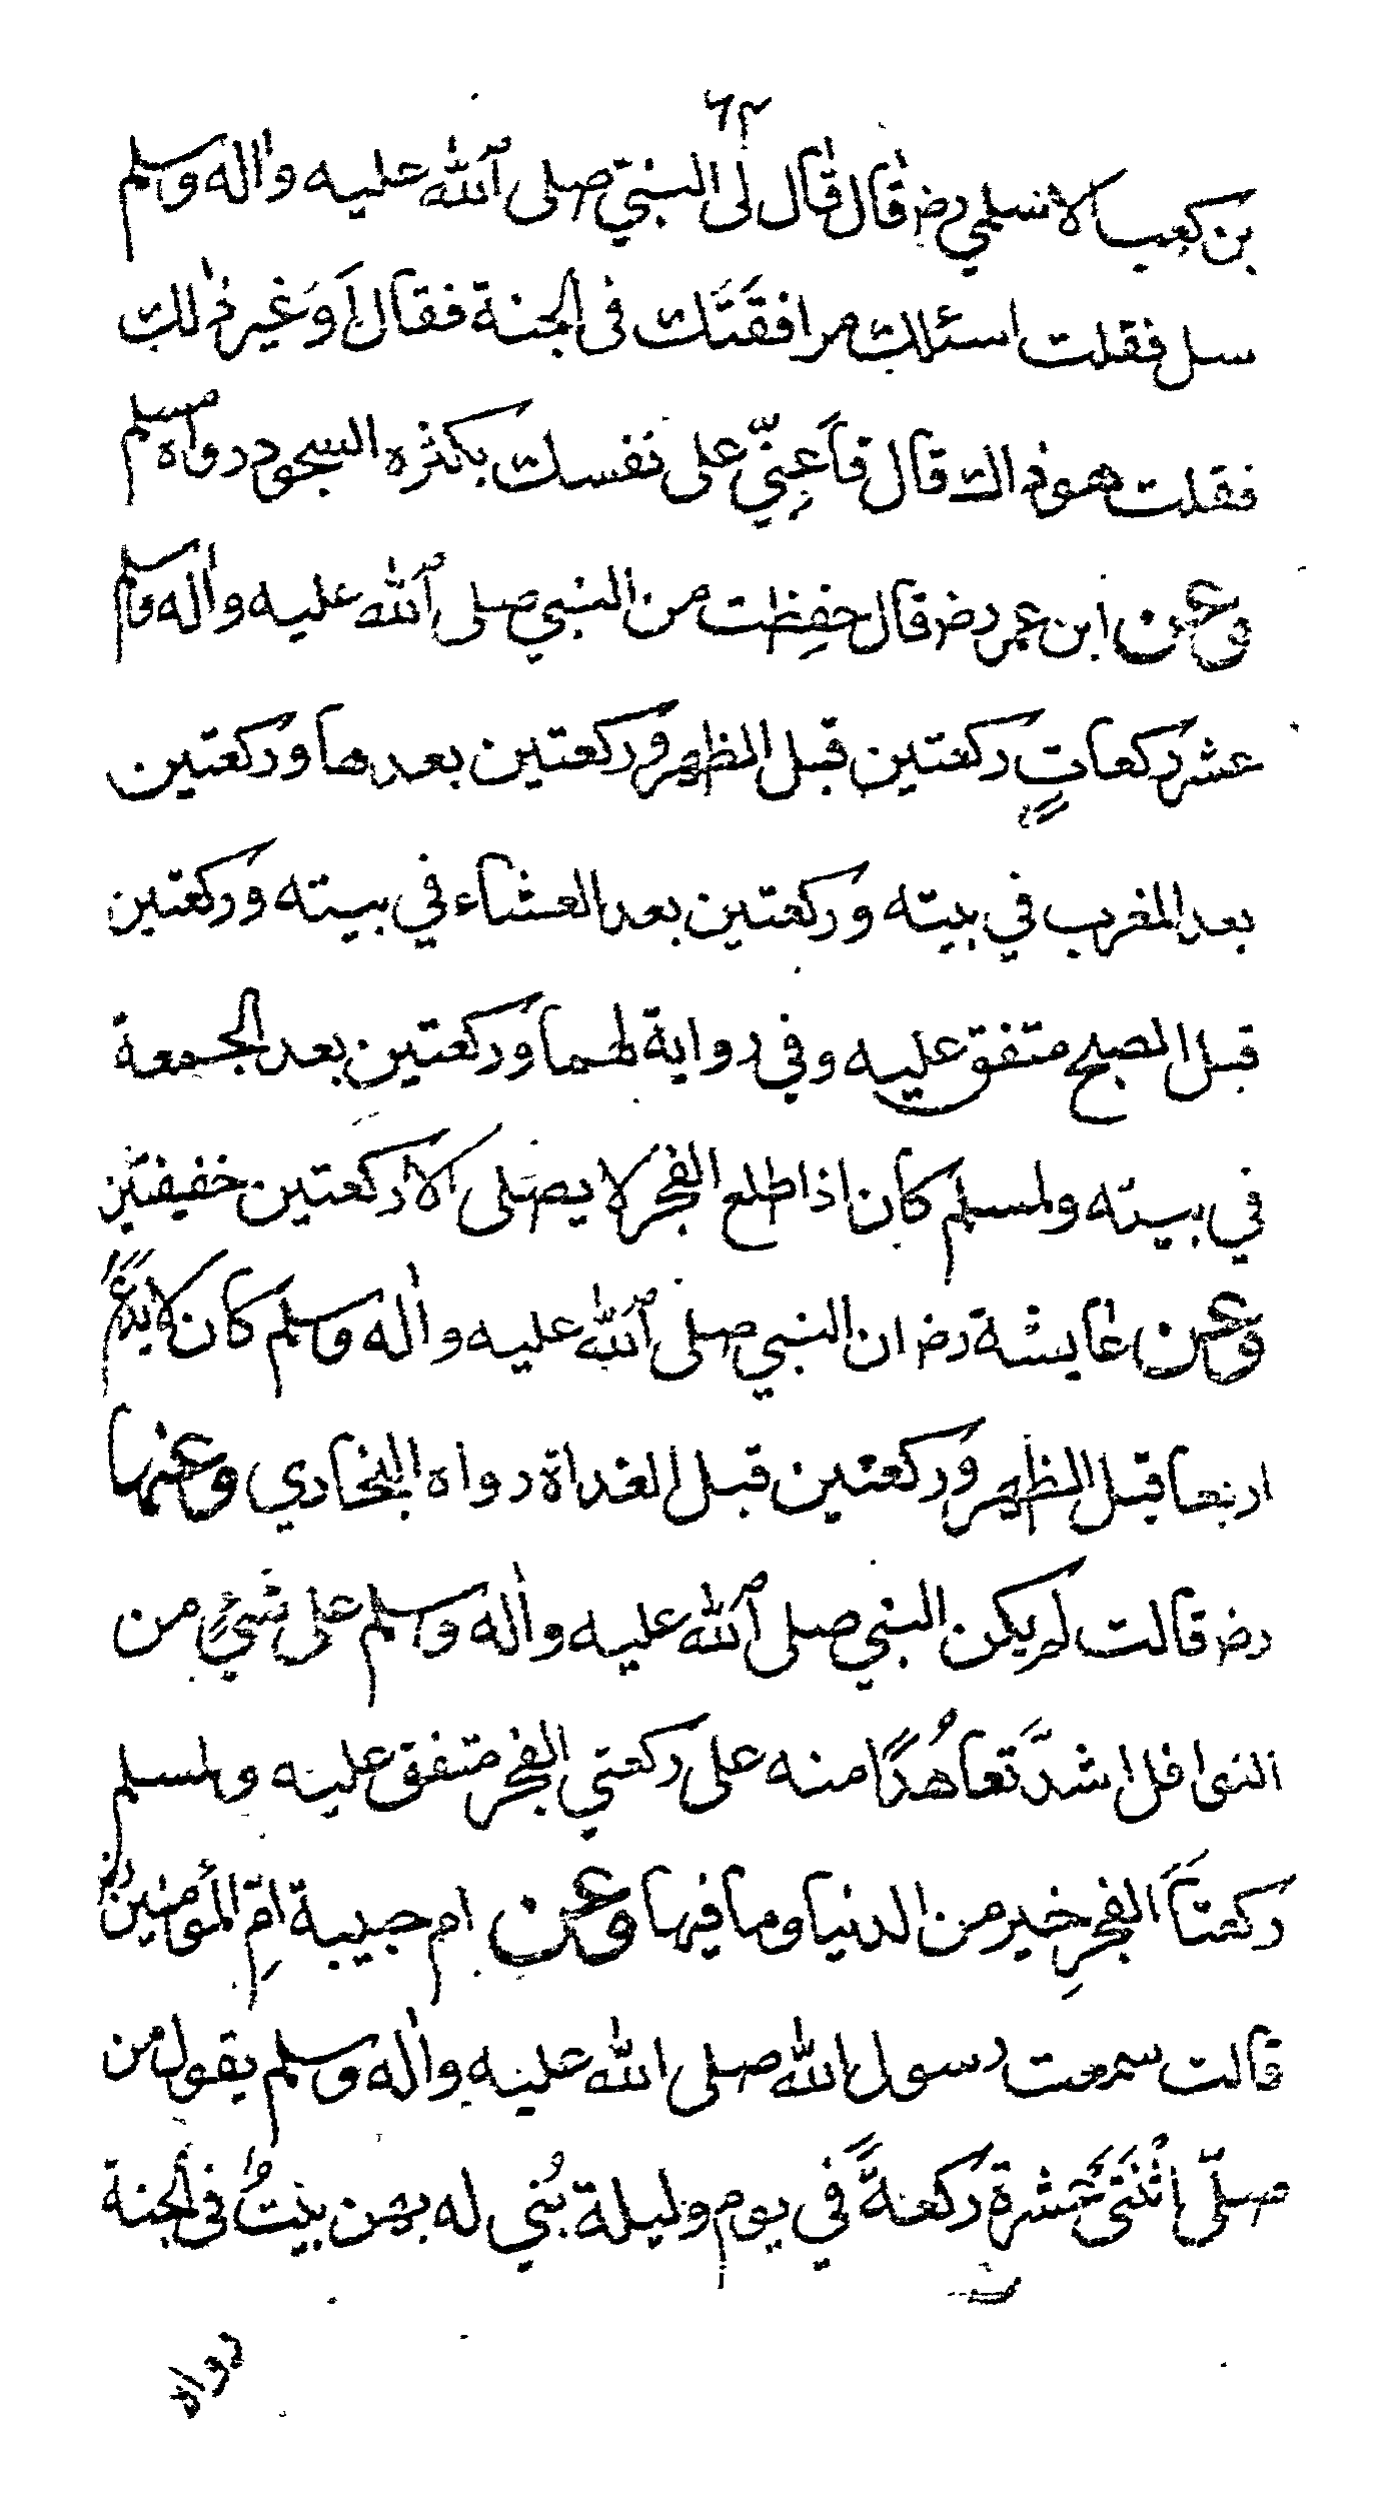 ٦٣
بن كعب الاسلمي رضـ قال قال لى النبيّ صلى الله عليه واٰله وسلم
سل فقلت اسئلك مرافقَتَك فى الجنة فقال اَوَغير ذٰلك
فقلت هو ذاك قال فاَعِنِّي على نفسك بكثره السجود رواه مسلم
وعن ابن عمر رضـ قال حفِظت من النبي صلى الله عليه واٰله وسلم
عشر ركعاتٍ ركعتين قبل الظهر وركعتين بعدها وركعتين
بعد المغرب في بيته وركعتين بعد العشاء في بيته وركعتين
قبل الصبح متفق عليه وفي رواية لهما وركعتين بعد الجمعة
في بيته ولمسلم كان اذا طلع الفجر لا يصلى الا ركعتين خفيفتين
وعن عايشة رضـ ان النبي صلى الله عليه واٰله وسلم كان لا يدع
اربعا قبل الظهر وركعتين قبل الغداة رواه البخاري وعنها
رضـ قالت لم يكن النبي صلى الله عليه واٰله وسلم على شيءٍ من
النوافل اشدَّ تعاهُدًا منه على ركعتي الفجر متفق عليه ولمسلم
ركعتَا الفجرِ خير من الدنيا وما فيها وعن ام حبيبة امِّ المؤمنين رضـ
قالت سمعت رسول الله صلى الله عليه واٰله وسلم يقول من
صلّى اثْنَتَى عَشرة ركعةً في يوم وليلة بُني له بهن بيتٌ فى الجنة
رواه